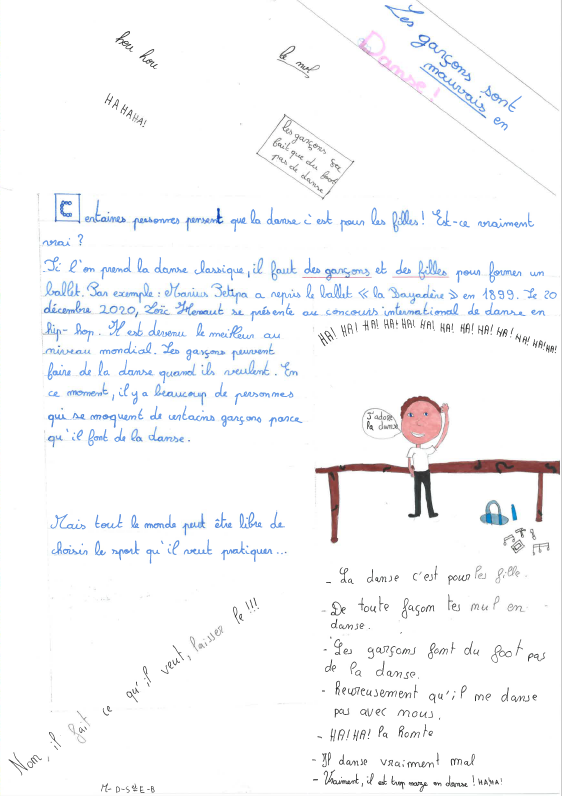 Les garçons sont
mauvais en
Danse !
hou hou
le nul,
HAHAHA!
les garçons sa
fait que du foot
pas de danse
Certaines personnes pensent que la danse c'est pour les filles ! Est-ce vraiment
vrai ?
Si l'on prend la danse classique, il faut des garçons et des filles pour former un
ballet. Par exemple : Marius Petipa a repris le ballet « la Bayadère » en 1899. Le 20
décembre 2020, Loïc Hénaut se présente au concours international de danse en
hip-hop. Il est devenu le meilleur au
niveau mondial. Les garçons peuvent
faire de la danse quand ils veulent. En
ce moment, il y a beaucoup de personnes
qui se moquent de certains garçons parce
qu'il font de la danse.
Mais tout le monde peut être libre de
choisir le sport qu'il veut pratiquer...
HA! HA! HA! HA! HA! HA! HA! HA! HA! HA! HA! HA! HA!
J'adore
la danse
- La danse c'est pour les fille.
- De toute façon tes nul en
danse.
- Les garçons font du foot pas
de la danse.
- Heureusement qu'il ne danse
pas avec nous.
- HA! HA! la honte
- Il danse vraiment mal
- Vraiment, il est trop naze en danse ! HAHA!
Non, il fait ce qu'il veut, laisser le !!!
M-D-5ᵉE-B